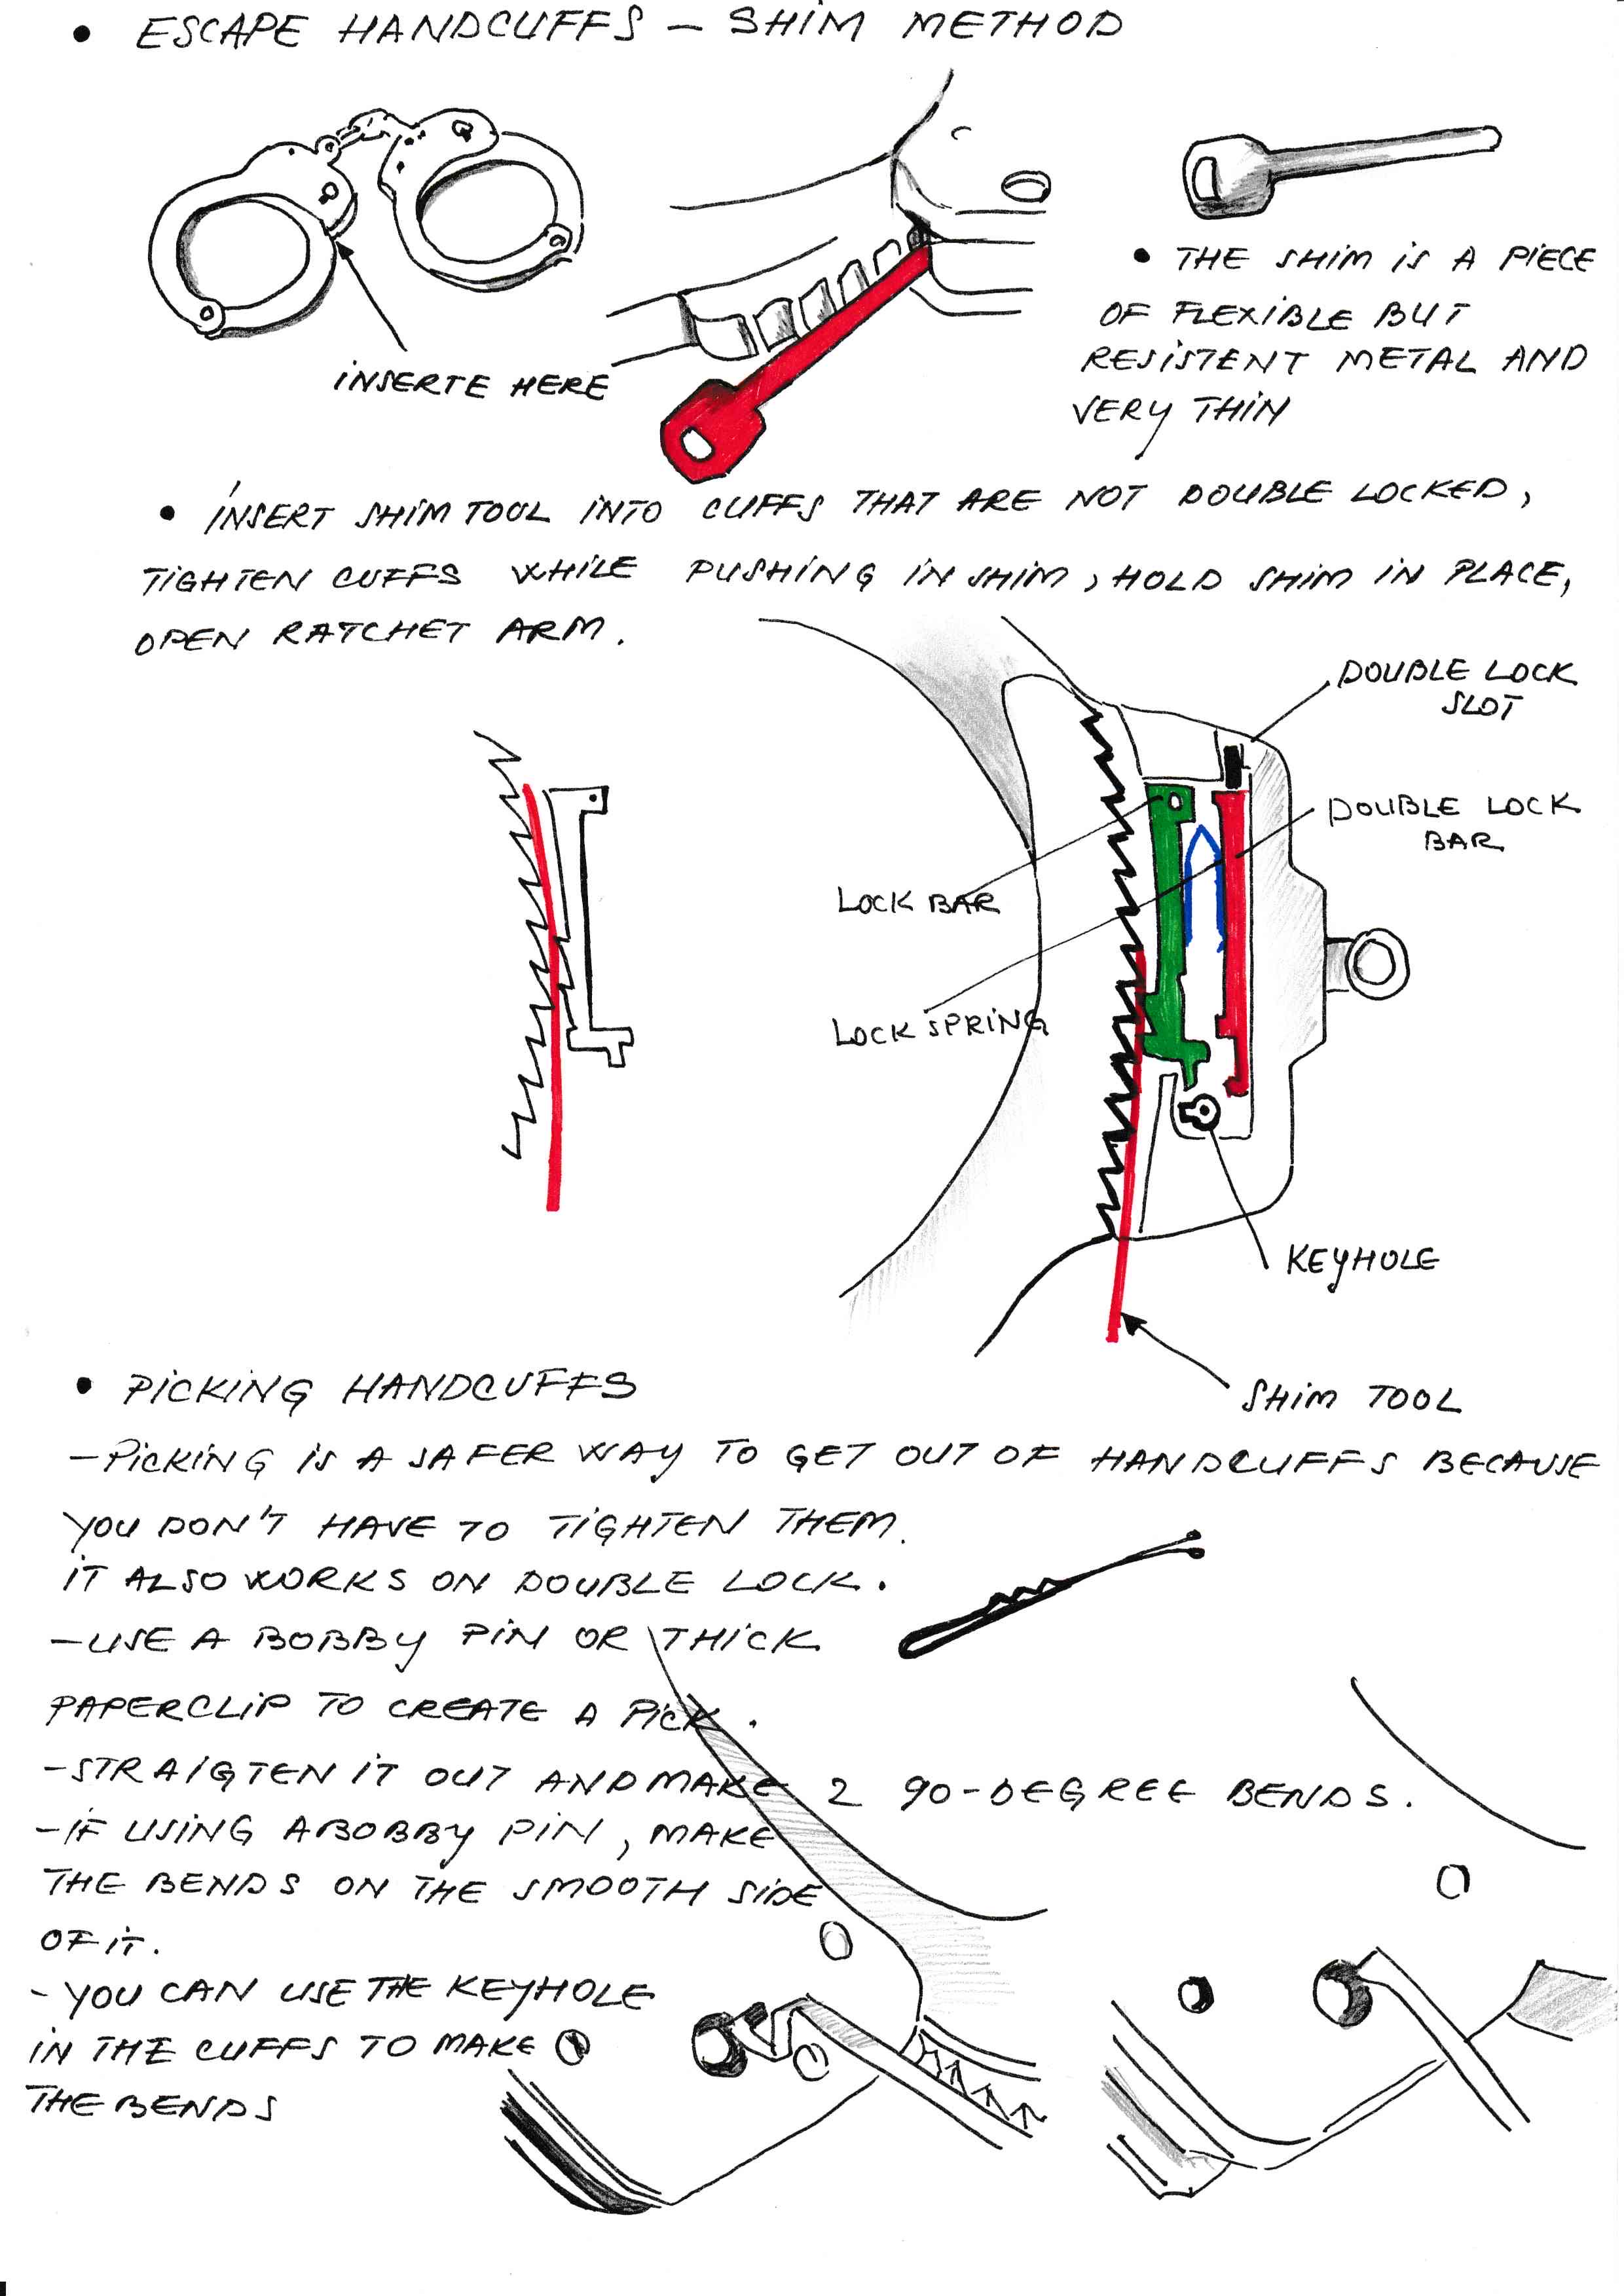 • ESCAPE HANDCUFFS – SHIM METHOD
INSERTE HERE
• THE SHIM IS A PIECE
OF FLEXIBLE BUT
RESISTENT METAL AND
VERY THIN
• INSERT SHIM TOOL INTO CUFFS THAT ARE NOT DOUBLE LOCKED,
TIGHTEN CUFFS WHILE PUSHING IN SHIM, HOLD SHIM IN PLACE,
OPEN RATCHET ARM.
DOUBLE LOCK
SLOT
DOUBLE LOCK
BAR
LOCK BAR
LOCK SPRING
KEYHOLE
SHIM TOOL
• PICKING HANDCUFFS
– PICKING IS A SAFER WAY TO GET OUT OF HANDCUFFS BECAUSE
YOU DON'T HAVE TO TIGHTEN THEM.
IT ALSO WORKS ON DOUBLE LOCK.
– USE A BOBBY PIN OR THICK
PAPERCLIP TO CREATE A PICK.
– STRAIGTEN IT OUT AND MAKE 2 90-DEGREE BENDS.
– IF USING A BOBBY PIN, MAKE
THE BENDS ON THE SMOOTH SIDE
OF IT.
– YOU CAN USE THE KEYHOLE
IN THE CUFFS TO MAKE
THE BENDS